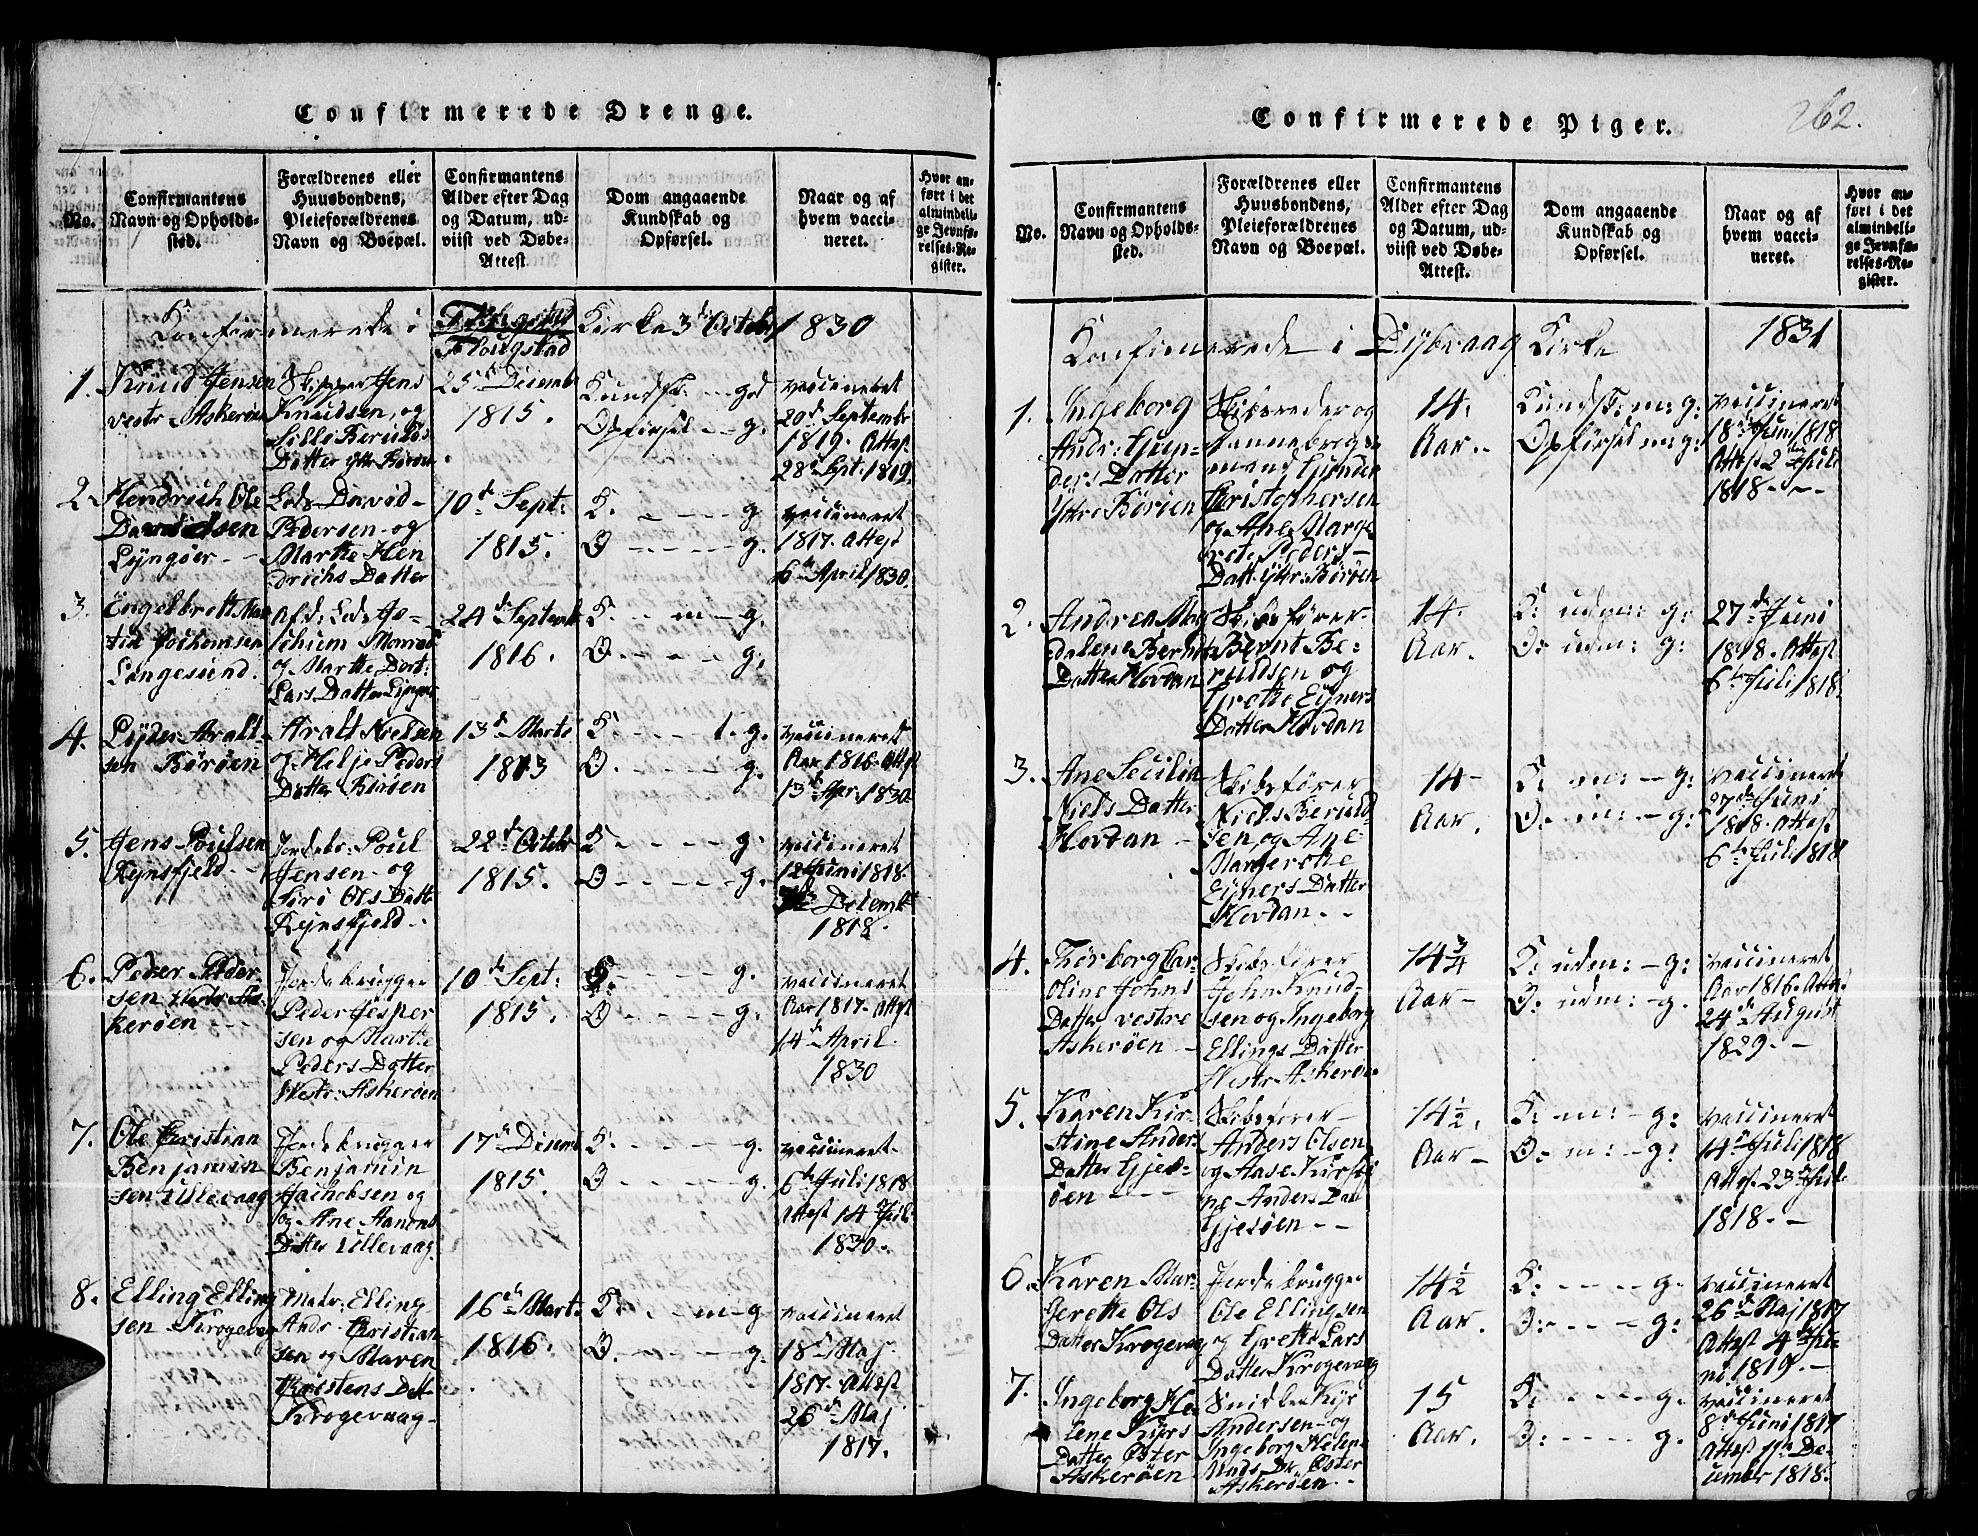 Confirmerede Drenge.
No.
Confirmantens
Navn og Opholds-
sted.
Forældrenes eller
Huusbondens,
Pleieforældrenes
Navn og Boepæl.
Confirmantens
Alder efter Dag
og Datum, ud-
viist ved Døbe-
Attest
Dom angaaende
Kundskab og
Opførsel.
Naar og af
hvem vacci-
neret.
Hvor an-
ført i det
almindeli-
ge Jevnfø-
relses-Re-
gister.
Konfirmerede i Flougstad Kirke 3d Octobr 1830
1. Knud Jensen
vestr Askerøen
Skipper Jens
Knudsen, og
Sille Beruldsdatter
Datter Yttr Børøen
25d Decembr
1815.
Kundsk. - - god
Opførsel - - g.
vaccineret
20d Septembr
1819. Attest
28d Sept. 1819.
2. Hendrich Ole
Davidsen
Lyngøer -
Lods David
Pedersen og
Marthe Hen
drichs Datter
10d Sept:
1815.
K. - - - - g.
O - - - - g.
vaccineret
1817. Attest
6d April 1830.
3. Engelbrett
Jochumsen
Langesund.
Afd: Lods Jo-
chum
og Marthe Dort:
Lars Datter
24d Septembr
1816.
K. - - m - g.
O. - - - - g.
4. Aralt-
sen Børøen
Aralt Nielsen
og Helje Peders
Datter Børøen
13d Marts
1813
K. - - - t. g.
O. - - - - g.
vaccineret
Aar 1816. Attest
13d Apr. 1830.
5. Jens Poulsen
Kynsfjeld -
Jordebr: Poul
Jensen - og
Siri Ols Datt
Kynsfjeld.
22d Octobr
1815.
K - - - - g.
O - - - - g.
vaccineret
12d Juni 1818.
Decembr
1818.
6. Peder Peder-
sen Vestr As-
kerøen - -
Jordebrugger
Peder Jesper
sen og Marthe
Peders Datter
Westr: Askerøen
10d Sept:
1815.
K - - - - g.
O - - - - g.
vaccineret
Aar 1817. Attest
14d April
1830
7. Ole Christian
Benjamin-
sen Ullevaag
Jordebrugger
Benjamin
Jachobsen og
og Ane Aanons
Datter Ullevaag.
17d Decemb
1815.
K. - - - - g.
O - - - - g.
vaccineret
6d Juli 1818
Attest 14 Juli
1830.
8. Elling Elling
sen Krogevaag
Matr: Elling
Andr. Christian
sen og Maren
Christens Datt
Krogevaag -
16d Marts
1816.
K. - - m - g.
O. - - - - g.
vaccineret
18d Maj
1817. Attest
26d Maj
1817.
Confirmerede Piger.
262.
No.
Confirmantens
Navn og Opholds-
sted.
Forældrenes eller
Huusbondens,
Pleieforældrenes
Navn og Boepæl.
Confirmantens
Alder efter Dag
og Datum, ud-
viist ved Døbe-
Attest.
Dom angaaende
Kundskab og
Opførsel.
Naar og af
hvem vacci-
neret.
Hvor an-
ført i det
almindeli-
ge Jevnfø-
relses-Re-
gister.
Konfirmerede i Dybvaag Kirke 1831
1. Ingeborg
Andr: Gun-
ders Datter
Yttre Børøen
Skibsreder og
Dannebrogs-
mand Gunder
Christophersen
og Ane Marge
rete Peders -
Datt. Yttr: Børøen
14.
Aar.
Kundsk: m: g:
Opførsel m: g:
vaccineret
18d Juni 1818
Attest 2den Juli
1818. - -
2. Andrea Mag
dalene Berndt
Datter Hovdan
Skibsfører
Bernt Be-
ruldsen og
Grethe Ejners
Datter Hovdan
14.
Aar.
K: udm: g:
O: udm: g:
27d Juni
1818. Attest
6te Juli 1818.
3. Ane Secilia
Niels Datter
Hovdan -
Skibsfører
Niels Beruld-
sen, og Ane
Margerethe
Ejners Datter
Hovdan. - -
14 -
Aar.
K: m: - g:
O: m: - g:
vaccineret
27d Juni
1818. Attest
6te Juli 1818
4. Thorborg Car-
oline Johns
Datter vestre
Askerøen -
Skibsfører
John Knud-
sen og Ingeborg
Ellings Datter
Westr Askerøen
14 3/4
Aar -
K: udm: - g:
O: udm: - g.
vaccineret
Aar 1816. Attest
24d August
1829. -
5. Karen Kir-
stine Anders
Datter Gjes-
øen - - -
Skibsfører -
Anders Olsen
og Aase Kirsti
ne Anders Datt
Gjesøen - -
14 1/2.
Aar -
K: m: - g:
O: m: - g:
vaccineret
14d Juli 1818
Attest 23d Juli
1818. -
6. Karen Mar-
gerette Ols
Datter Krogevaag
Jordebrugger
Ole Ellingsen
og Grethe Lars
Datter Krogevaag
14 1/2
Aar.
K: - - - - g.
O: - - - g:
vaccineret
26d Maj 1817
Attest 4d Ju-
ni 1819. -
7. Ingeborg He-
lene Kjørs
Datter Øster
Askerøen
Kjør
Andersen - og
Ingeborg Helene
Øster
Askerøen. - -
15
Aar.
K: - - - - g.
O: - - - - g.
vaccineret
8d Juni 1817
Attest 11d De-
cembr 1818.